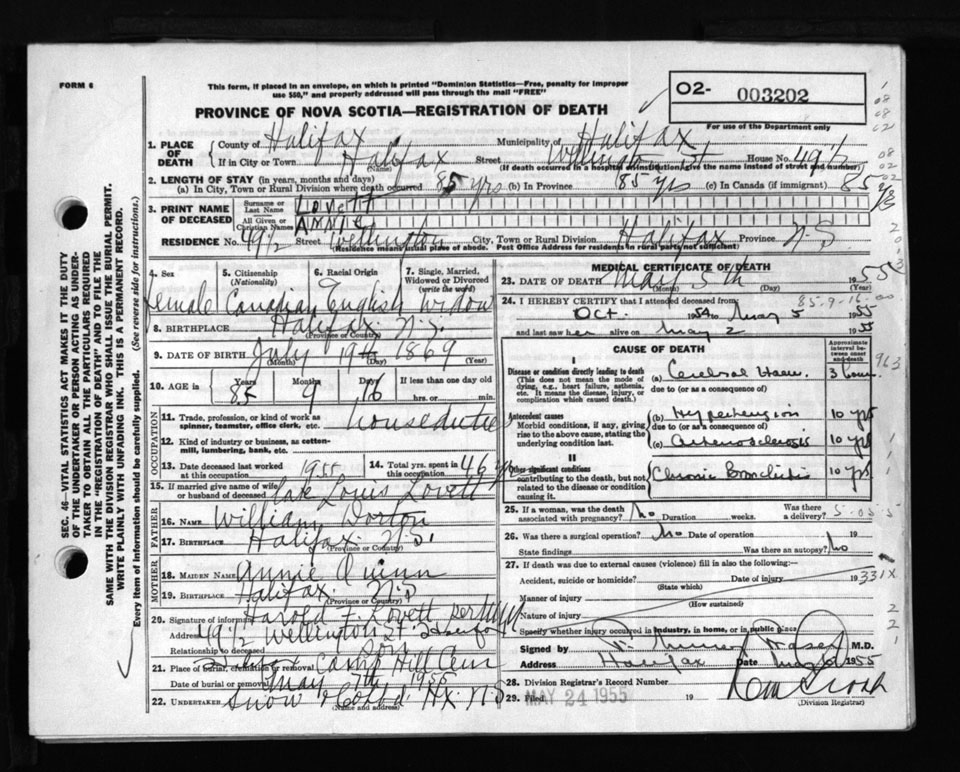 FORM 6
This form, if placed in an envelope, on which is printed "Dominion Statistics—Free, penalty for improper
use $50," and properly addressed will pass through the mail "FREE"
PROVINCE OF NOVA SCOTIA—REGISTRATION OF DEATH
O2- 003202
For use of the Department only
SEC. 46—VITAL STATISTICS ACT MAKES IT THE DUTY
OF THE UNDERTAKER OR PERSON ACTING AS UNDER-
TAKER TO OBTAIN ALL THE PARTICULARS REQUIRED
IN THE "REGISTRATION OF DEATH" AND TO FILE THE
SAME WITH THE DIVISION REGISTRAR WHO SHALL ISSUE THE BURIAL PERMIT.
WRITE PLAINLY WITH UNFADING INK. THIS IS A PERMANENT RECORD.
Every item of information should be carefully supplied. (See reverse side for instructions.)
1. PLACE OF DEATH County of Halifax Municipality of Halifax
If in City or Town Halifax Street Wellington St House No. 49½
(Name) (If death occurred in a hospital or institution, give the name instead of street and number)
2. LENGTH OF STAY (in years, months and days)
(a) In City, Town or Rural Division where death occurred 85 yrs (b) In Province 85 yrs (c) In Canada (if immigrant) 85 yrs
3. PRINT NAME OF DECEASED Surname or Last Name LOVETT
All Given or Christian Names ANNIE
RESIDENCE No. 49½ Street Wellington City, Town or Rural Division Halifax Province N.S.
(Residence means usual place of abode. Post Office Address for residents in rural parts not sufficient)
4. Sex 5. Citizenship (Nationality) 6. Racial Origin 7. Single, Married, Widowed or Divorced (write the word)
Female Canadian English Widow
8. BIRTHPLACE Halifax N.S.
(Province or Country)
9. DATE OF BIRTH July 19th 1869
(Month) (Day) (Year)
10. AGE in Years Months Days If less than one day old
85 9 16 hrs. or min.
OCCUPATION
11. Trade, profession, or kind of work as spinner, teamster, office clerk, etc. houseduties
12. Kind of industry or business, as cotton-mill, lumbering, bank, etc.
13. Date deceased last worked at this occupation 1955 14. Total yrs. spent in this occupation 46 yrs
15. If married give name of wife or husband of deceased late Louis Lovett
FATHER
16. NAME William Dorton
17. BIRTHPLACE Halifax N.S.
(Province or Country)
MOTHER
18. MAIDEN NAME Annie Quinn
19. BIRTHPLACE Halifax N.S
(Province or Country)
20. Signature of informant Harold F. Lovett
Address 49½ Wellington St. Halifax
Relationship to deceased Son
21. Place of burial, cremation or removal Camp Hill Cem
Date of burial or removal May 7th 1955
22. UNDERTAKER Snow & Co Ltd. Hx. N.S
(Name and address)
MEDICAL CERTIFICATE OF DEATH
23. DATE OF DEATH May 5th 1955
(Month) (Day)
24. I HEREBY CERTIFY that I attended deceased from: 85-9-16-00
Oct. 1954 to May 5 1955
and last saw her alive on May 2 1955
CAUSE OF DEATH Approximate interval between onset and death
I
Disease or condition directly leading to death (a) Cerebral Haem. 3 hours
(This does not mean the mode of dying, e.g., heart failure, asthenia, etc. It means the disease, injury, or complication which caused death.)
due to (or as a consequence of)
Antecedent causes (b) Hypertension 10 yrs
Morbid conditions, if any, giving rise to the above cause, stating the underlying condition last.
due to (or as a consequence of)
(c) Arteriosclerosis 10 yrs
II
Other significant conditions Chronic Bronchitis 10 yrs
contributing to the death, but not related to the disease or condition causing it.
963
25. If a woman, was the death associated with pregnancy? No Duration weeks. Was there a delivery?
5-05-5
26. Was there a surgical operation? No Date of operation 19
State findings Was there an autopsy? No
27. If death was due to external causes (violence) fill in also the following:
Accident, suicide or homicide? Date of injury 19
(State which)
331X
Manner of injury
(How sustained)
Nature of injury
Specify whether injury occurred in industry, in home, or in public place
Signed by M.D.
Address Halifax Date May 6 1955
28. Division Registrar's Record Number
29. Filed MAY 24 1955 19
(Division Registrar)